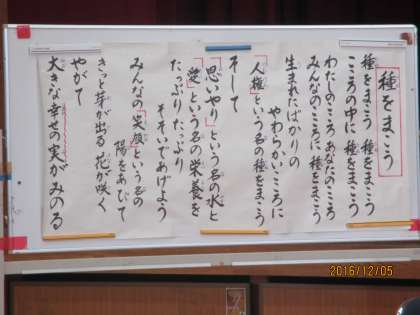 種をまこう
種をまこう 種をまこう
こころの中に 種をまこう
わたしのこころ あなたのこころ
みんなのこころに 種をまこう
生まれたばかりの
やわらかいこころに
「人権」という名の種をまこう
そして
「思いやり」という名の水と
「愛」という名の栄養を
たっぷり たっぷり
そそいであげよう
みんなの「笑顔」という名の
陽をあびて
きっと芽が出る 花が咲く
やがて
大きな幸せの実がみのる
2016/12/05